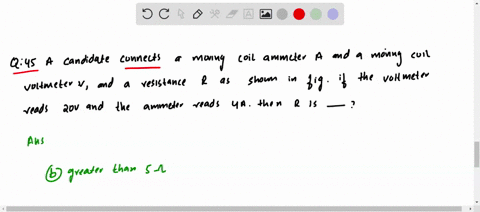 Q:45 A candidate connects a moving coil ammeter A and a moving coil
voltmeter V, and a resistance R as shown in fig. if the voltmeter
reads 20V and the ammeter reads 4A. then R is ___ ?
Ans
(b) greater than 5 Ω